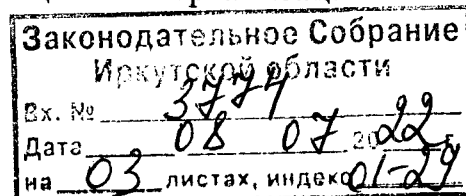 Законодательное Собрание
Иркутской области
Вх. № 3774
Дата 08 07 2022 г.
на 03 листах, индекс 01-29